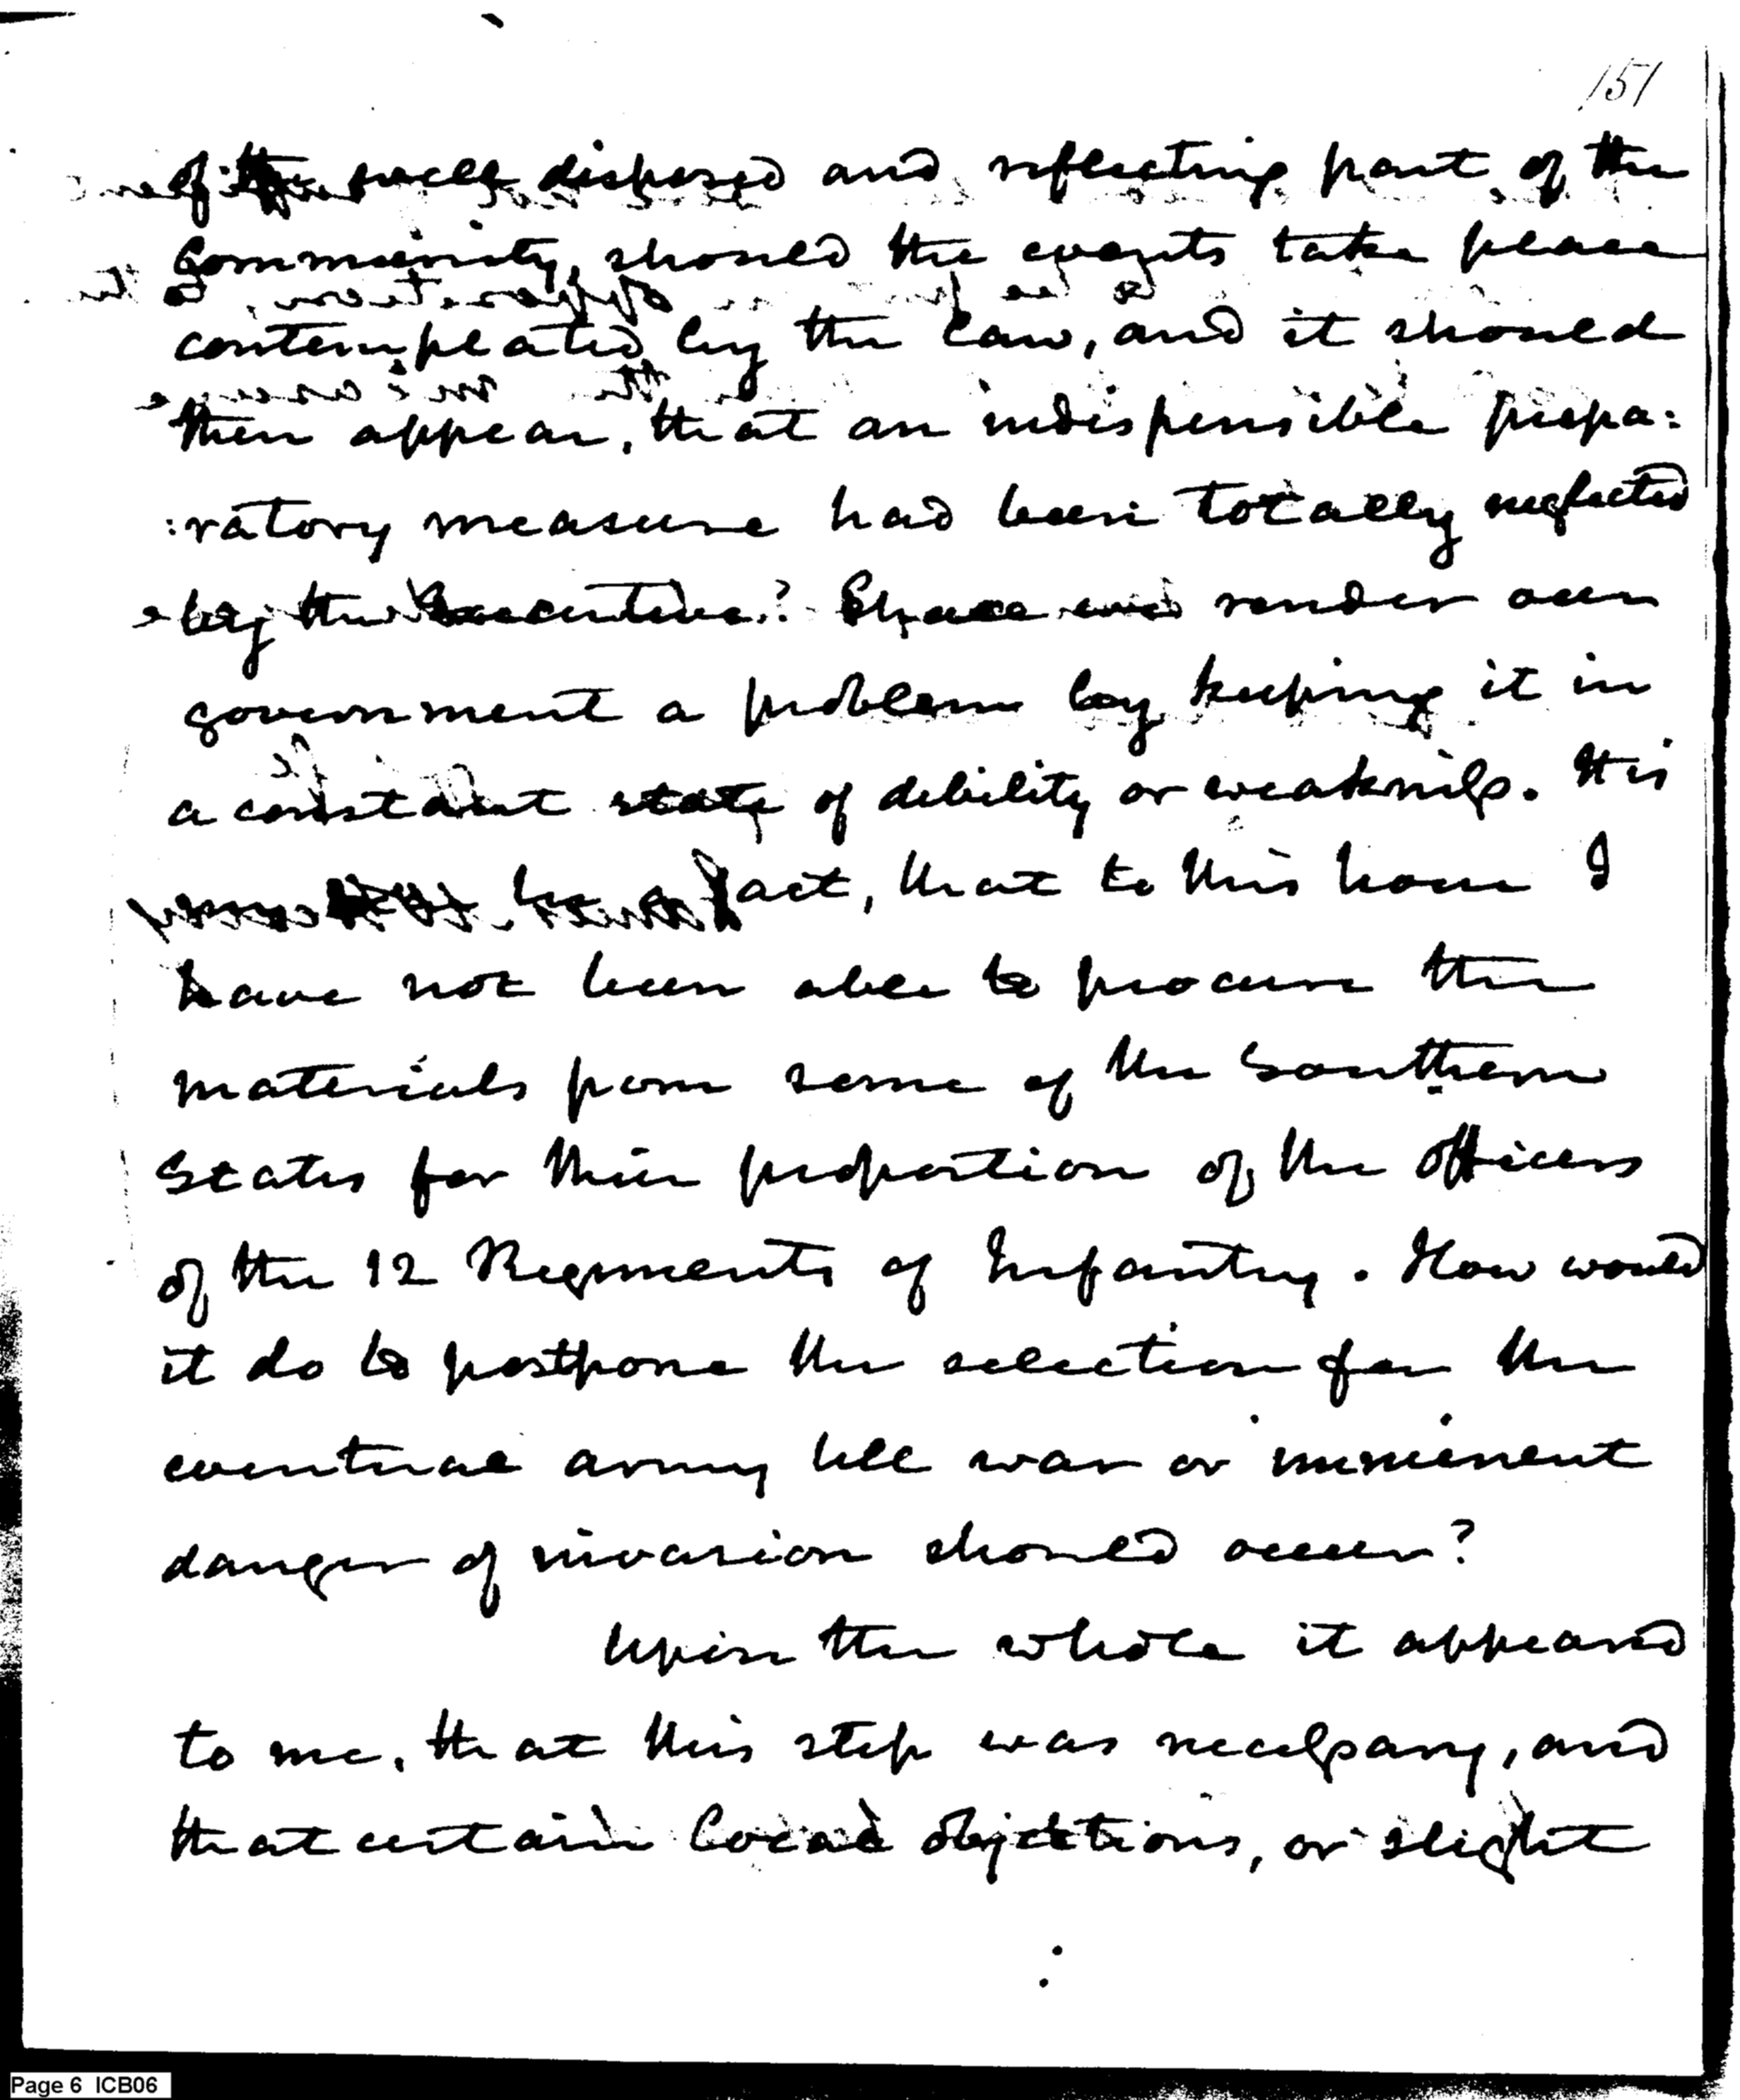 151
of the well disposed and reflecting part of the
Community, should the events take place
contemplated by the law, and it should
then appear, that an indispensible prepa:
:ratory measure had been totally neglected
by the Executive? Shall we render our
government a problem by keeping it in
a constant state of debility or weakness. It is
be a fact, that to this hour I
have not been able to procure the
materials from some of the Southern
States for their proportion of the officers
of the 12 Regiments of Infantry. How would
it do to postpone the selection for the
eventual army till war or imminent
danger of invasion should occur?
Upon the whole it appeared
to me, that this step was necessary, and
that certain local objections, or slight
Page 6 ICB06